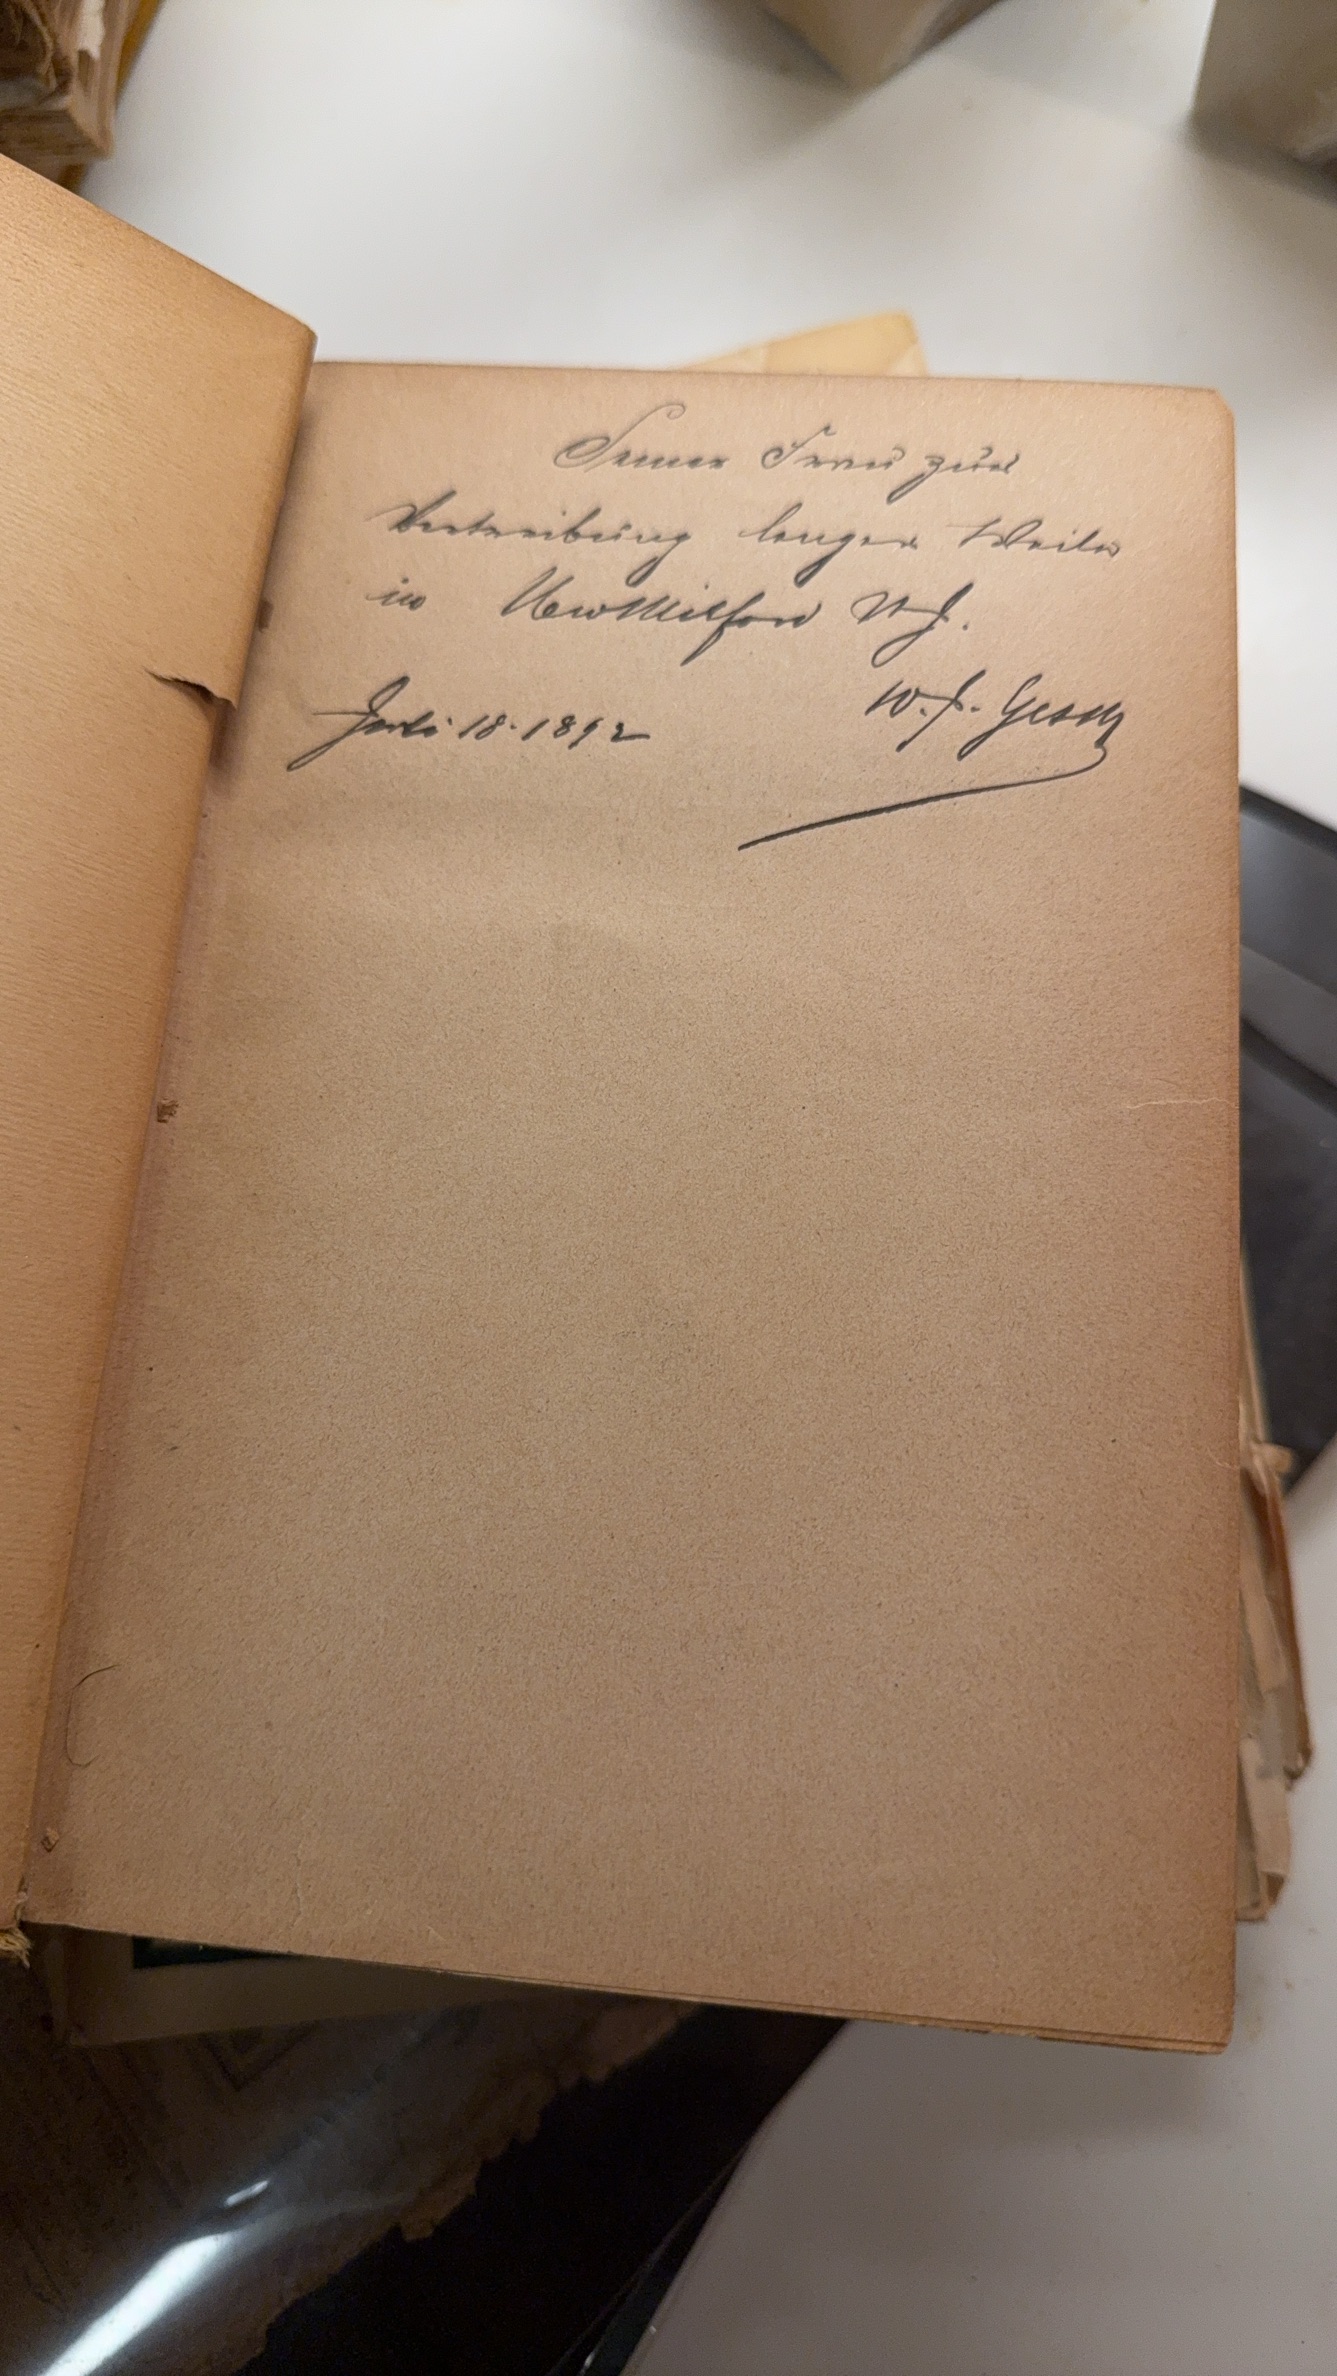 Seiner Frau zur
Vertreibung langer Weile
in New Milford N.J.
Juli 18. 1892 W. J.